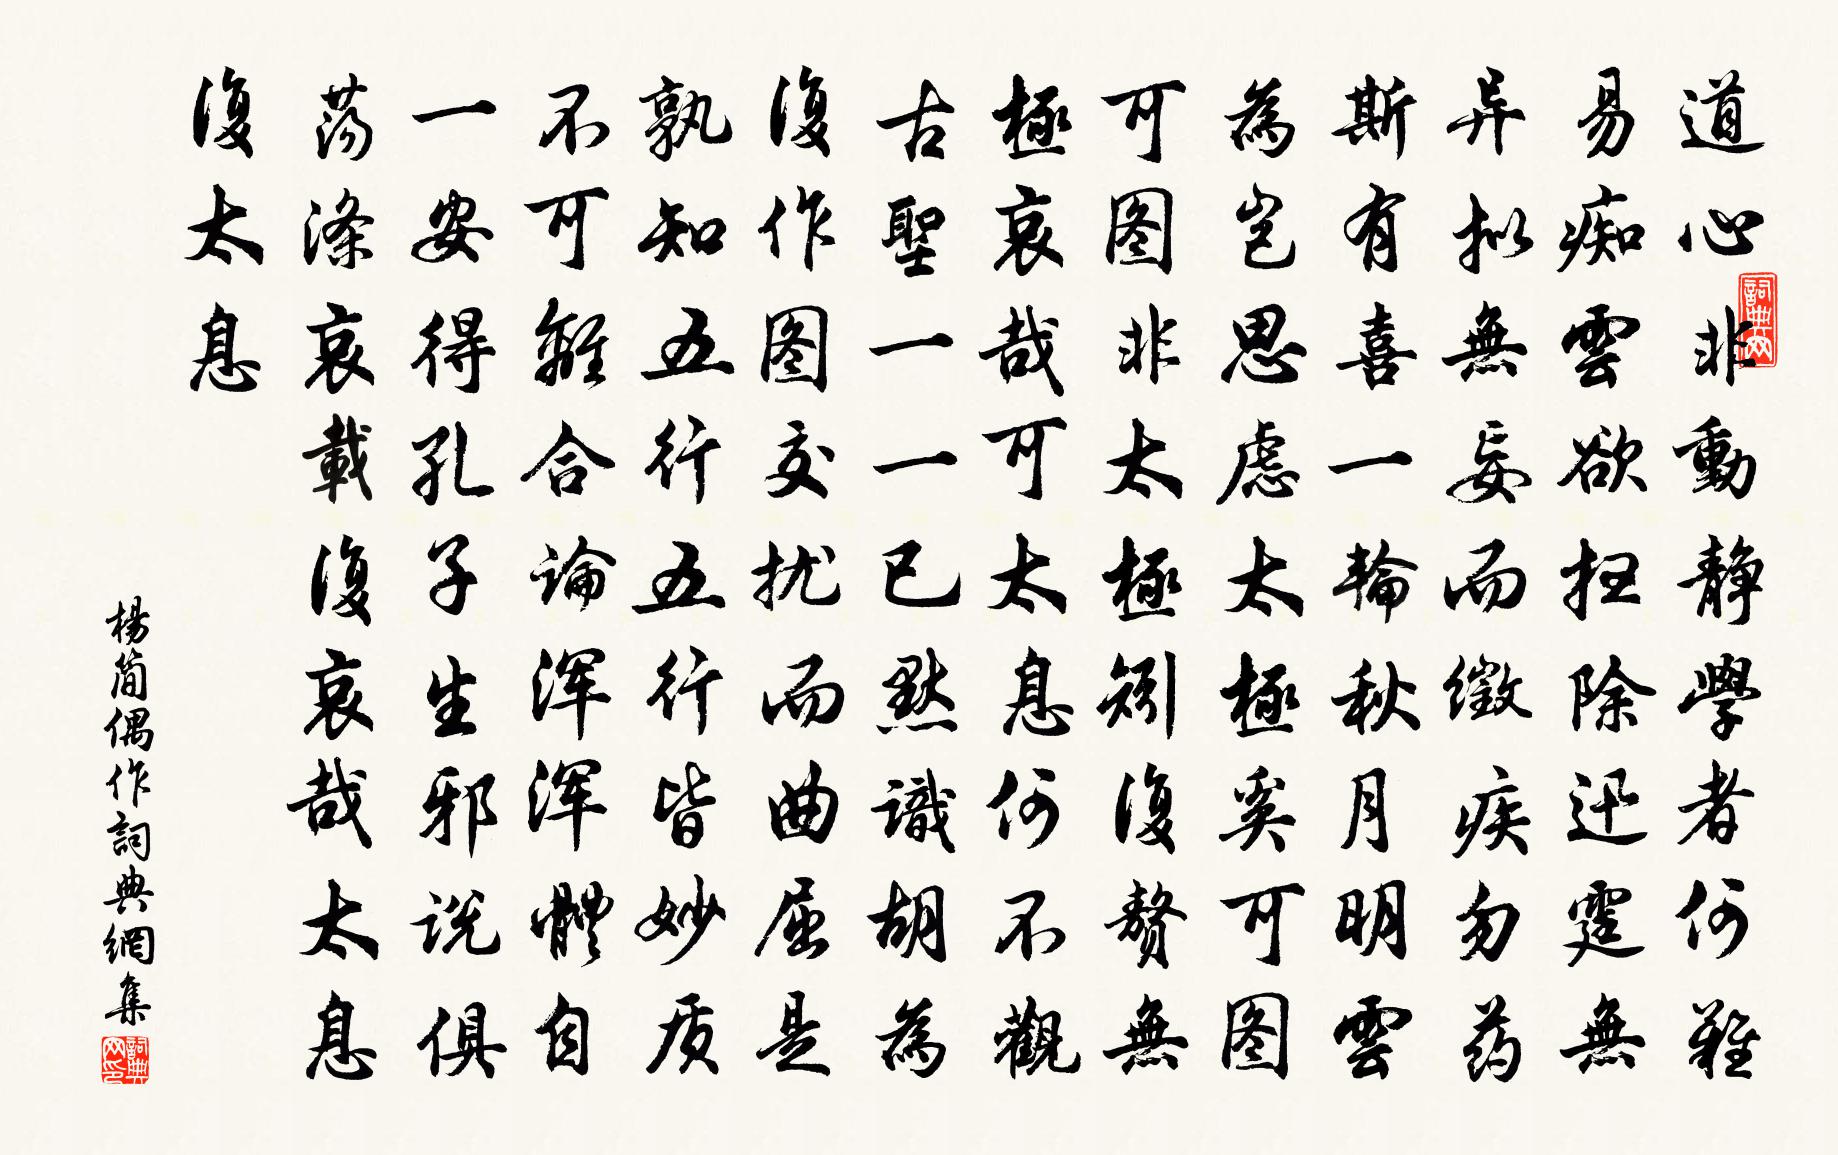 道心非動靜學者何難
易痴雲欲扫除迅霆無
异拟無妄而徵疾勿药
斯有喜一輪秋月明雲
為岂思慮太極奚可图
可图非太極矧復贅無
極哀哉可太息何不觀
古聖一一已默識胡為
復作图交扰而曲屈是
孰知五行五行皆妙质
不可離合論浑浑體自
一安得孔子生邪说俱
荡涤哀載復哀哉太息
復太息
楊简偶作詞典網集
詞典网
詞典网印